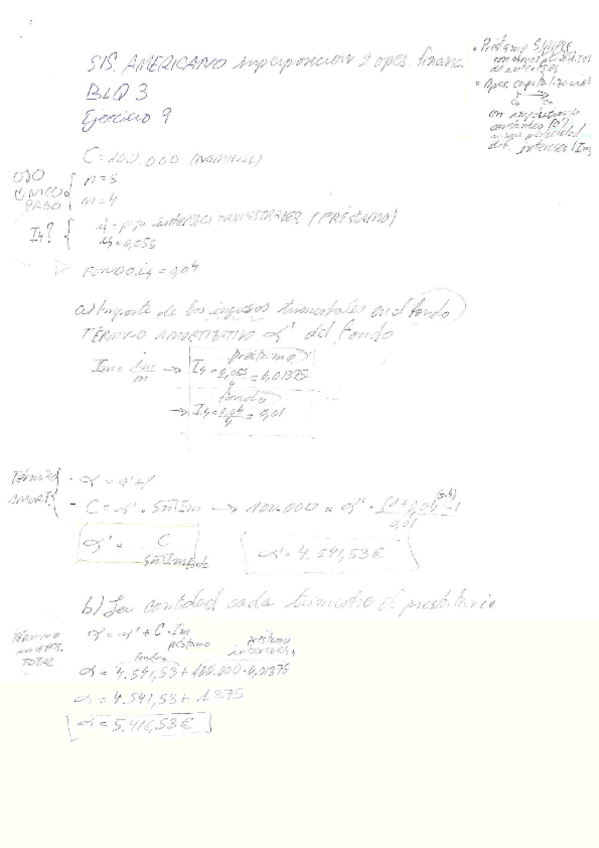 SIS. AMERICANO superposición 2 opes. financ.
BLQ 3
Ejercicio 9
• Préstamo SIMPLE
con abonos periódicos
de intereses
• Opes. capitalización
Co Cn
con imposiciones
constantes (α')
misma periodicidad
dif. intereses (Im)
C = 100.000 (NOMINAL)
OJO
ÚNICO
PAGO
n = 5
m = 4
I4?
j4 = pago intereses TRIMESTRALES (PRÉSTAMO)
j4 = 0,055
FONDO j4 = 0,04
a) Importe de los ingresos trimestrales en el fondo
TÉRMINO AMORTIZATIVO α' del fondo
Préstamo
Im = jm/m → I4 = 0,055/4 = 0,01375
fondo
→ I4 = 0,04/4 = 0,01
TÉRMINO
AMORT.
- α = α' +
- C = α' · Sn Im → 100.000 = α' ·
0,01
α' = C
α' = 4.541,53 €
b) La cantidad cada trimestre el prestatario
TÉRMINO
TOTAL
α = α' + C · Im
préstamo
fondo
préstamo
intereses
α = 4.541,53 + 100.000 · 0,01375
α = 4.541,53 + 1.375
α = 5.916,53 €